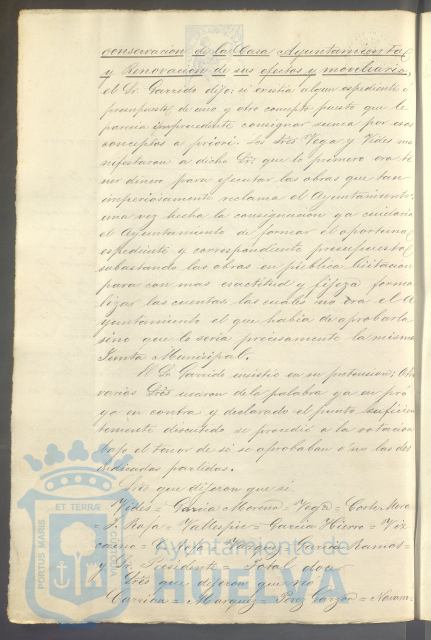 conservacion de la Casa Ayuntamiental
y Renovacion de sus efectos y moviliario,
el Sr. Garrido dijo: si existia algun espediente ó
presupuesto, de uno y otro concepto puesto que le
parecia improcedente consignar suma por esos
conceptos a priori. Los Sres Vega y Vides ma
nifestaron a dicho Sr. que lo primero era te
ner dinero para ejecutar las obras que tan
imperiosamente reclama el Ayuntamiento:
una vez hecha la consignacion ya cuidaria
el Ayuntamiento de formar el oportuno
espediente y correspondiente presupuesto
subastando las obras en publica licitacion
para con mas exactitud y fijeza forma
lizar las cuentas las cuales no era el A
yuntamiento el que habia de aprobarla
sino que lo seria precisamente la misma
Junta Municipal.
El Sr Garrido insistio en su pretension; Otros
varios Sres usaron de la palabra ya en pró
ya en contra y declarado el punto suficien
temente discutido se procedió a la votacion
bajo el tenor de si se aprobaban ó no las des
indicadas partidas.
Sres que dijeron que si
Vides = Garcia Moreno = Vega = Corte
= Rafa = = Garcia Hierro = Viz
caino = = = Garcia Ramos =
y Sr. Presidente = Total doce
Sres que dijeron que no
Garrido = Marquez = Perez Garzon = Navarro
PORTUS MARIS
ET TERRÆ
CUSTODIA
Ayuntamiento de
HUELVA